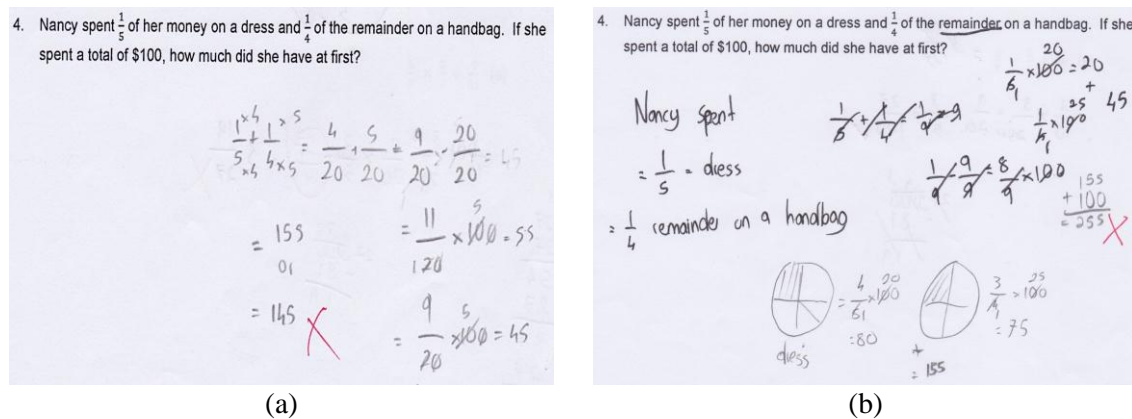 4. Nancy spent 1/5 of her money on a dress and 1/4 of the remainder on a handbag. If she
spent a total of $100, how much did she have at first?
1×4/5×4 + 1×5/4×5 = 4/20 + 5/20 = 9/20 - 20/20 = 45
= 155
01
= 145
= 11/120 × 100 = 55
5
= 9/20 × 100 = 45
5
(a)
4. Nancy spent 1/5 of her money on a dress and 1/4 of the remainder on a handbag. If she
spent a total of $100, how much did she have at first?
20
1/5 × 100 = 20
1
+
25
1/4 × 100
1
45
Nancy spent
= 1/5 = dress
= 1/4 remainder on a handbag
1/5 + 1/4
8/9 × 100
155
+ 100
= 255
dress
= 4/5 × 100
1
20
= 80
3/4 × 100
1
25
= 75
+
= 155
(b)